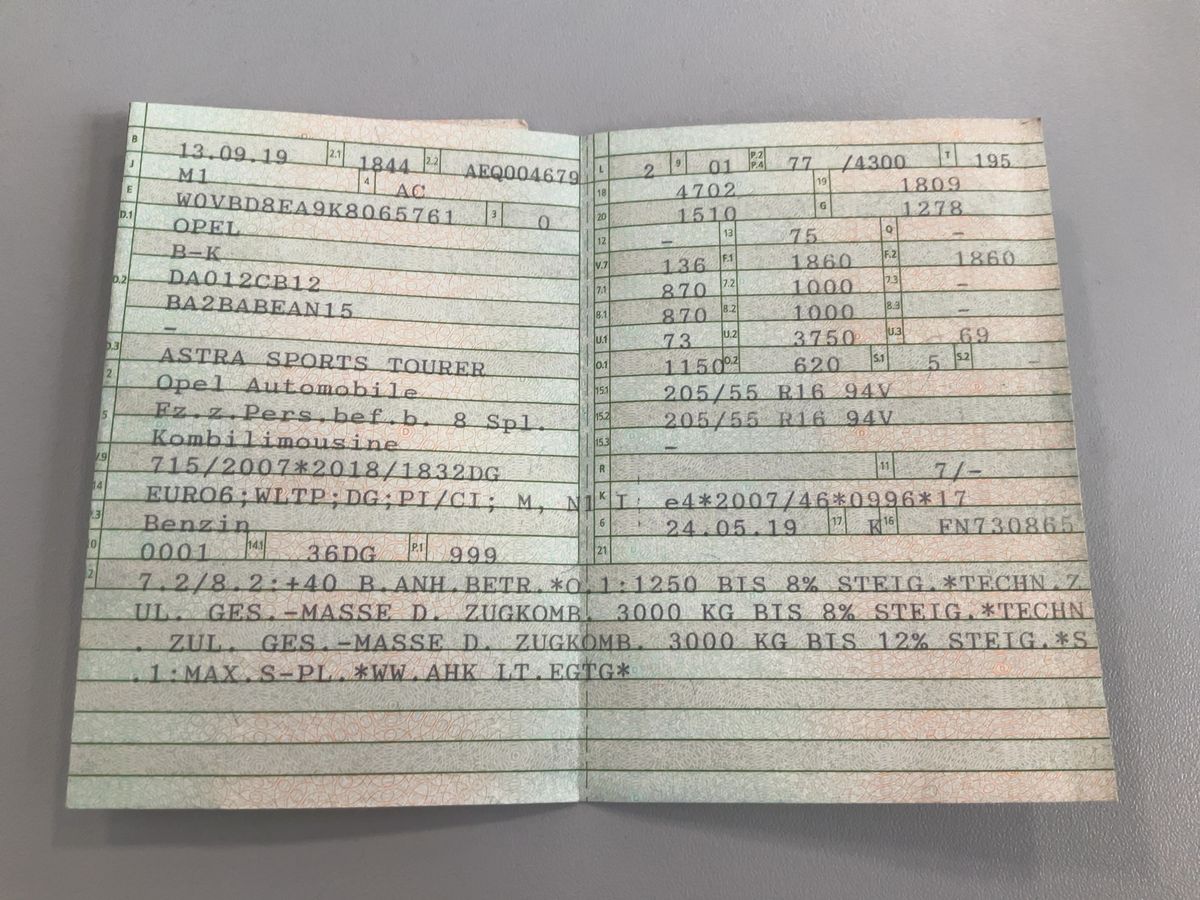 B 13.09.19 2.1 1844 2.2 AEQ004679
J M1 4 AC
E W0VBD8EA9K8065761 3 0
D.1 OPEL
B-K
D.2 DA012CB12
BA2BABEAN15
-
D.3 ASTRA SPORTS TOURER
2 Opel Automobile
5 Fz.z.Pers.bef.b. 8 Spl.
Kombilimousine
V.9 715/2007*2018/1832DG
14 EURO6;WLTP;DG;PI/CI; M, N1 I
P.3 Benzin
10 0001 14.1 36DG P.1 999
L 2 9 01 P.2 P.4 77 /4300 T 195
18 4702 19 1809
20 1510 G 1278
12 - 13 75 Q -
V.7 136 F.1 1860 F.2 1860
7.1 870 7.2 1000 7.3 -
8.1 870 8.2 1000 8.3 -
U.1 73 U.2 3750 U.3 69
O.1 1150 O.2 620 S.1 5 S.2 -
15.1 205/55 R16 94V
15.2 205/55 R16 94V
15.3 -
R 11 7/-
K e4*2007/46*0996*17
6 24.05.19 17 K 16 FN730865
21
22 7.2/8.2:+40 B.ANH.BETR.*O.1:1250 BIS 8% STEIG.*TECHN.Z
UL. GES.-MASSE D. ZUGKOMB. 3000 KG BIS 8% STEIG.*TECHN
. ZUL. GES.-MASSE D. ZUGKOMB. 3000 KG BIS 12% STEIG.*S
.1:MAX.S-PL.*WW.AHK LT.EGTG*